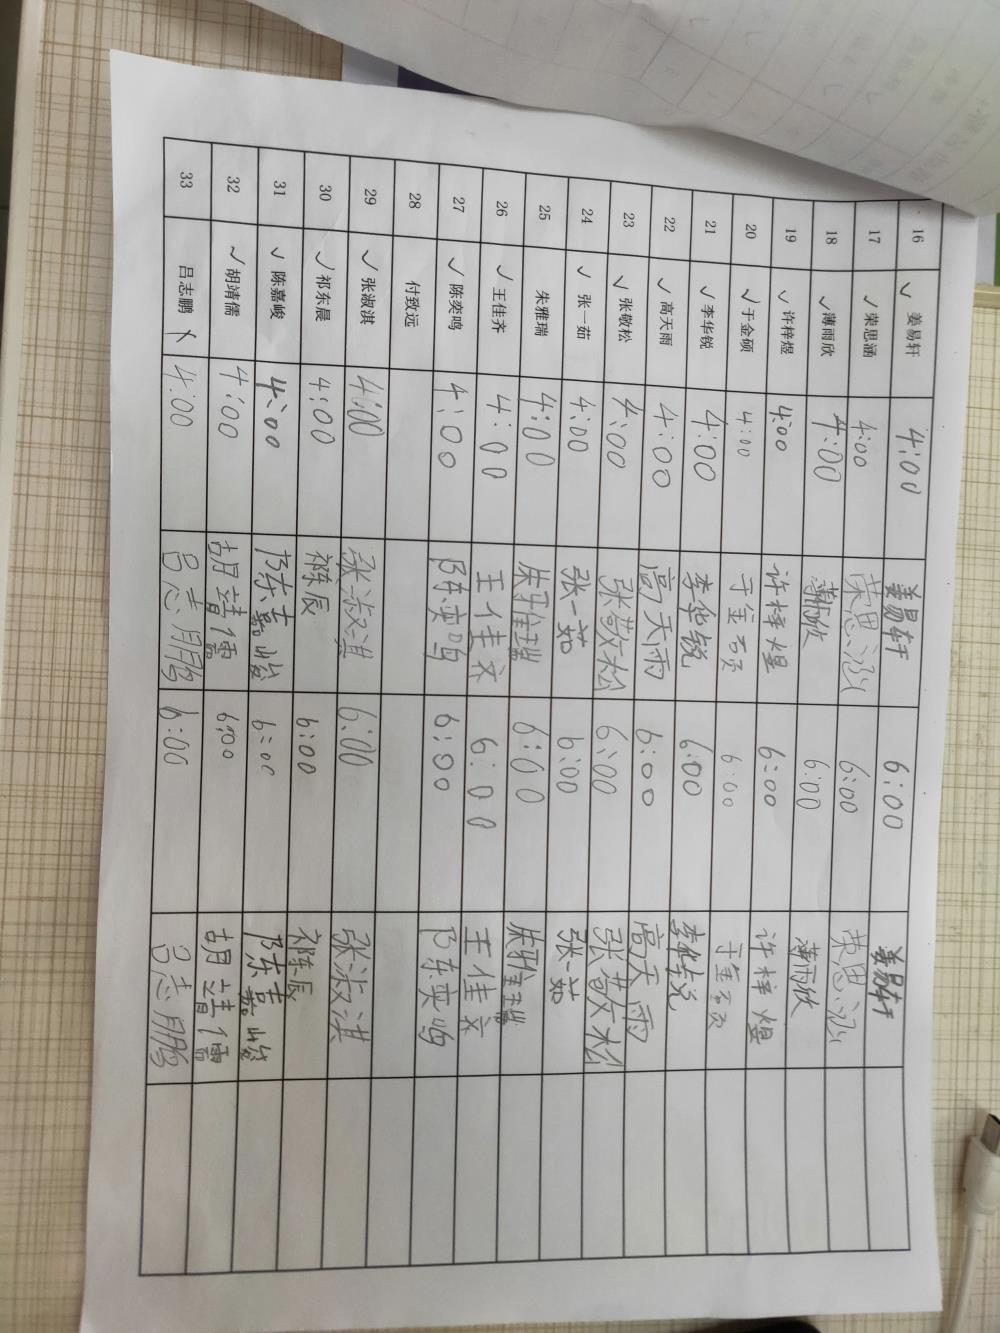 16 ✓ 姜易轩 4:00 姜易轩 6:00 姜易轩
17 ✓ 荣思涵 4:00 荣思涵 6:00 荣思涵
18 ✓ 薄雨欣 4:00 薄雨欣 6:00 薄雨欣
19 ✓ 许梓煜 4:00 许梓煜 6:00 许梓煜
20 ✓ 于金硕 4:00 于金硕 6:00 于金硕
21 ✓ 李华锐 4:00 李华锐 6:00 李华锐
22 ✓ 高天雨 4:00 高天雨 6:00 高天雨
23 ✓ 张敬松 4:00 张敬松 6:00 张敬松
24 ✓ 张一茹 4:00 张一茹 6:00 张一茹
25 朱雅瑞 4:00 朱雅瑞 6:00 朱雅瑞
26 ✓ 王佳齐 4:00 王佳齐 6:00 王佳齐
27 ✓ 陈奕鸣 4:00 陈奕鸣 6:00 陈奕鸣
28 付致远
29 ✓ 张淑淇 4:00 张淑淇 6:00 张淑淇
30 ✓ 祁东晨 4:00 祁东辰 6:00 祁东辰
31 ✓ 陈嘉峻 4:00 陈嘉峻 6:00 陈嘉峻
32 ✓ 胡靖儒 4:00 胡靖儒 6:00 胡靖儒
33 吕志鹏 4:00 吕志鹏 6:00 吕志鹏